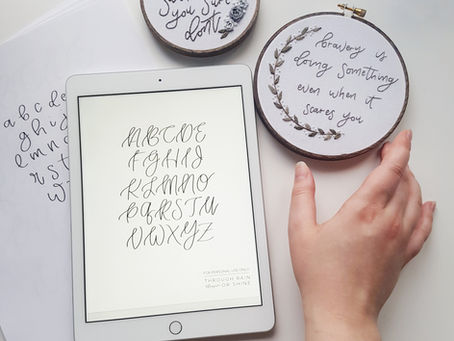 you
don't
bravery is
doing something
even when it
scares you
a b c d e
g h i j
l m n o
r s t
w
ABCDE
FGHIJ
KLMNO
PQRSTU
VWXYZ
FOR PERSONAL USE ONLY
THROUGH RAIN
OR SHINE